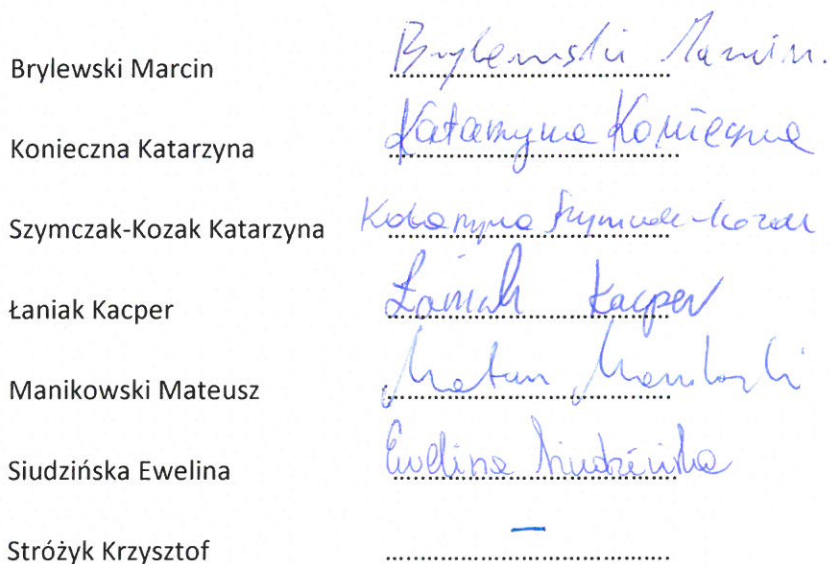 Brylewski Marcin ........................................ Brylewski Marcin.
Konieczna Katarzyna ........................................ Katarzyna Konieczna
Szymczak-Kozak Katarzyna ........................................ Katarzyna Szymczak-Kozak
Łaniak Kacper ........................................ Łaniak Kacper
Manikowski Mateusz ........................................ Mateusz Manikowski
Siudzińska Ewelina ........................................ Ewelina Siudzińska
Stróżyk Krzysztof ........................................ —